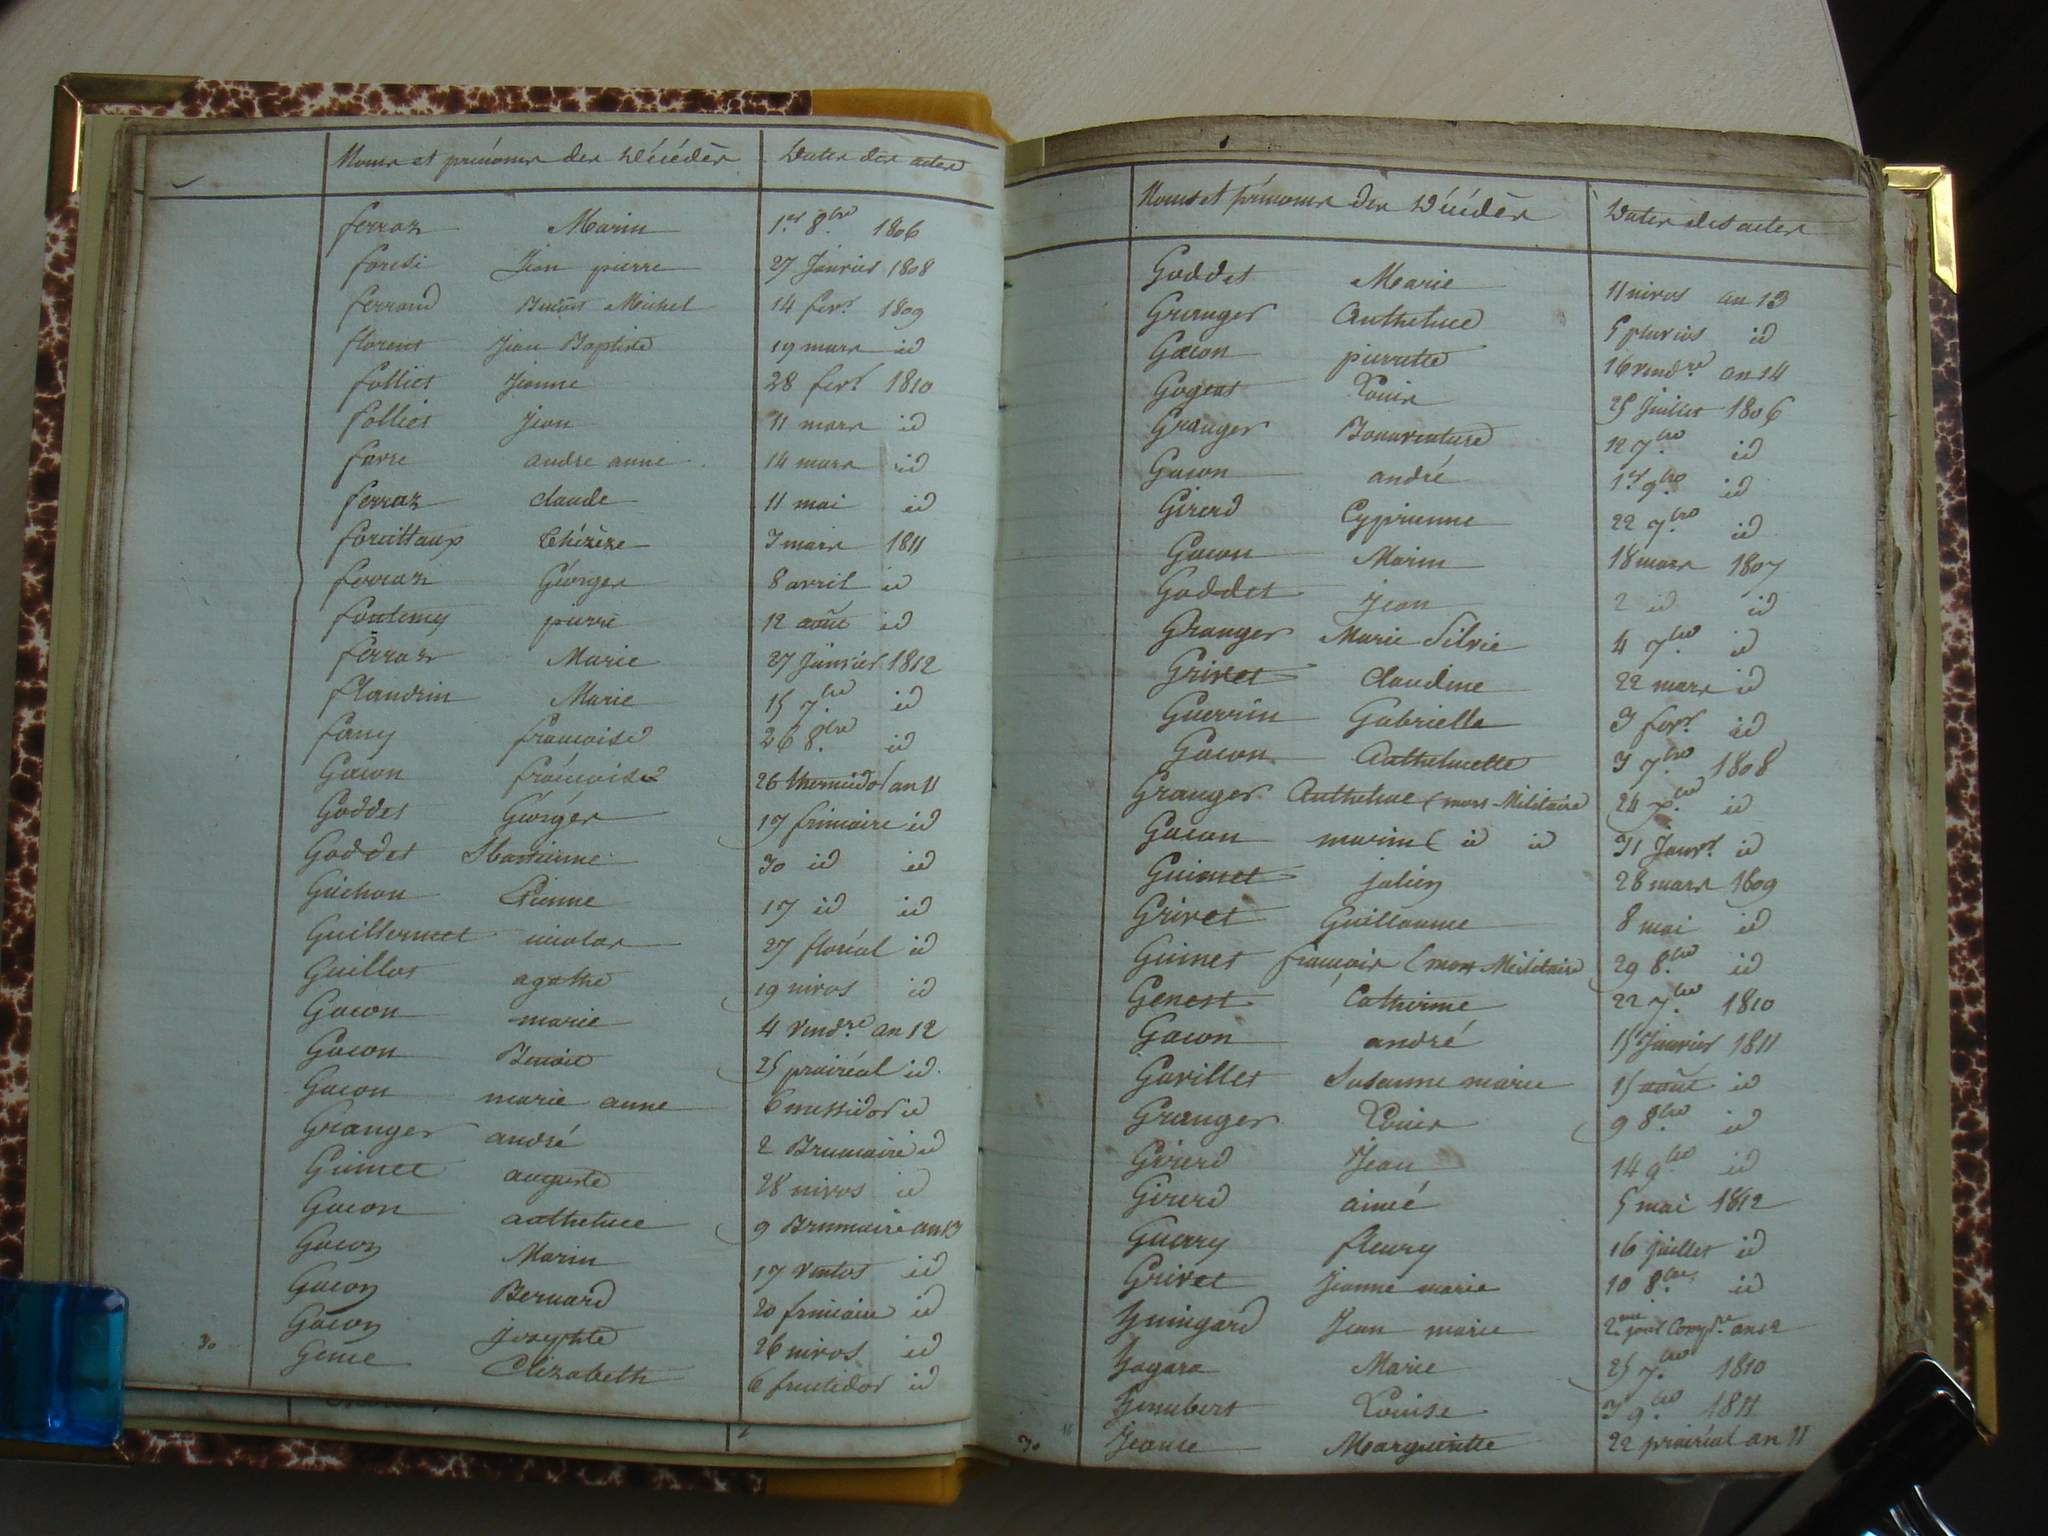 Noms et prénoms des Décédés Dates des actes
ferraz Marin 1er 8bre 1806
foresi Jean pierre 27 Janvier 1808
ferrand Benoit Michel 14 fevr 1809
florent Jean Baptiste 19 mars id
folliet Jeanne 28 fevr 1810
folliet Jean 11 mars id
favre andre anne 14 mars id
ferraz claude 11 mai id
Thérèze 3 mars 1811
ferraz Georges 8 avril id
fontemy pierre 12 août id
ferraz Marie 27 Janvier 1812
flandrin Marie 15 7bre id
fany francoise 26 8bre id
Gacon francoise 26 thermidor an 11
Goddet Georges 17 frimaire id
Goddet 30 id id
Guichon Etienne 17 id id
Guillermet nicolas 27 floréal id
Guillot agathe 19 nivos id
Gacon marie 4 vendre an 12
Gacon Benoit 25 prairéal id
Gacon marie anne 6 messidor id
Granger andré 2 Brumaire id
Guimet auguste 28 nivos id
Gacon anthelme 9 Brumaire an 13
Gacon Marin 17 ventos id
Gacon Bernard 20 frimaire id
Gacon Josephte 26 nivos id
30 Genie Elizabeth 6 fructidor id
Noms et prénoms des Décédés Dates des actes
Goddet Marie 11 nivos an 13
Granger Anthelme 5 pluvios id
Gacon pierrette 16 vendre an 14
Gogeat Louis 25 Juillet 1806
Granger Bonaventure 12 7bre id
Gacon andré 1er 9bre id
Girerd Cyprienne 22 7bre id
Gacon Marin 18 mars 1807
Goddet Jean 2 id id
Granger Marie Silvie 4 7bre id
Grivet claudine 22 mars id
Guerrin Gabrielle 3 fevr id
Gacon Anthelmette 3 7bre 1808
Granger Anthelme (mort Militaire 24 id
Gacon marin ( id id 31 Janvr id
Guimet julien 28 mars 1809
Grivet Guillaume 8 mai id
Guinet françois (mort Militaire 29 8bre id
Genest Catherine 22 7bre 1810
Gacon andré 15 Janvier 1811
Gavillet Susanne marie 15 août id
Granger Louis 9 8bre id
Girerd Jean 14 9bre id
Girerd aimé 5 mai 1812
Guerry fleury 16 juillet id
Grivet Jeanne marie 10 8bre id
Humigard Jean marie 2me jour Compre an 12
Hagara Marie 25 7bre 1810
Humbert Louise 3 9bre 1811
30 Jeanne Marguerite 22 prairéal an 11